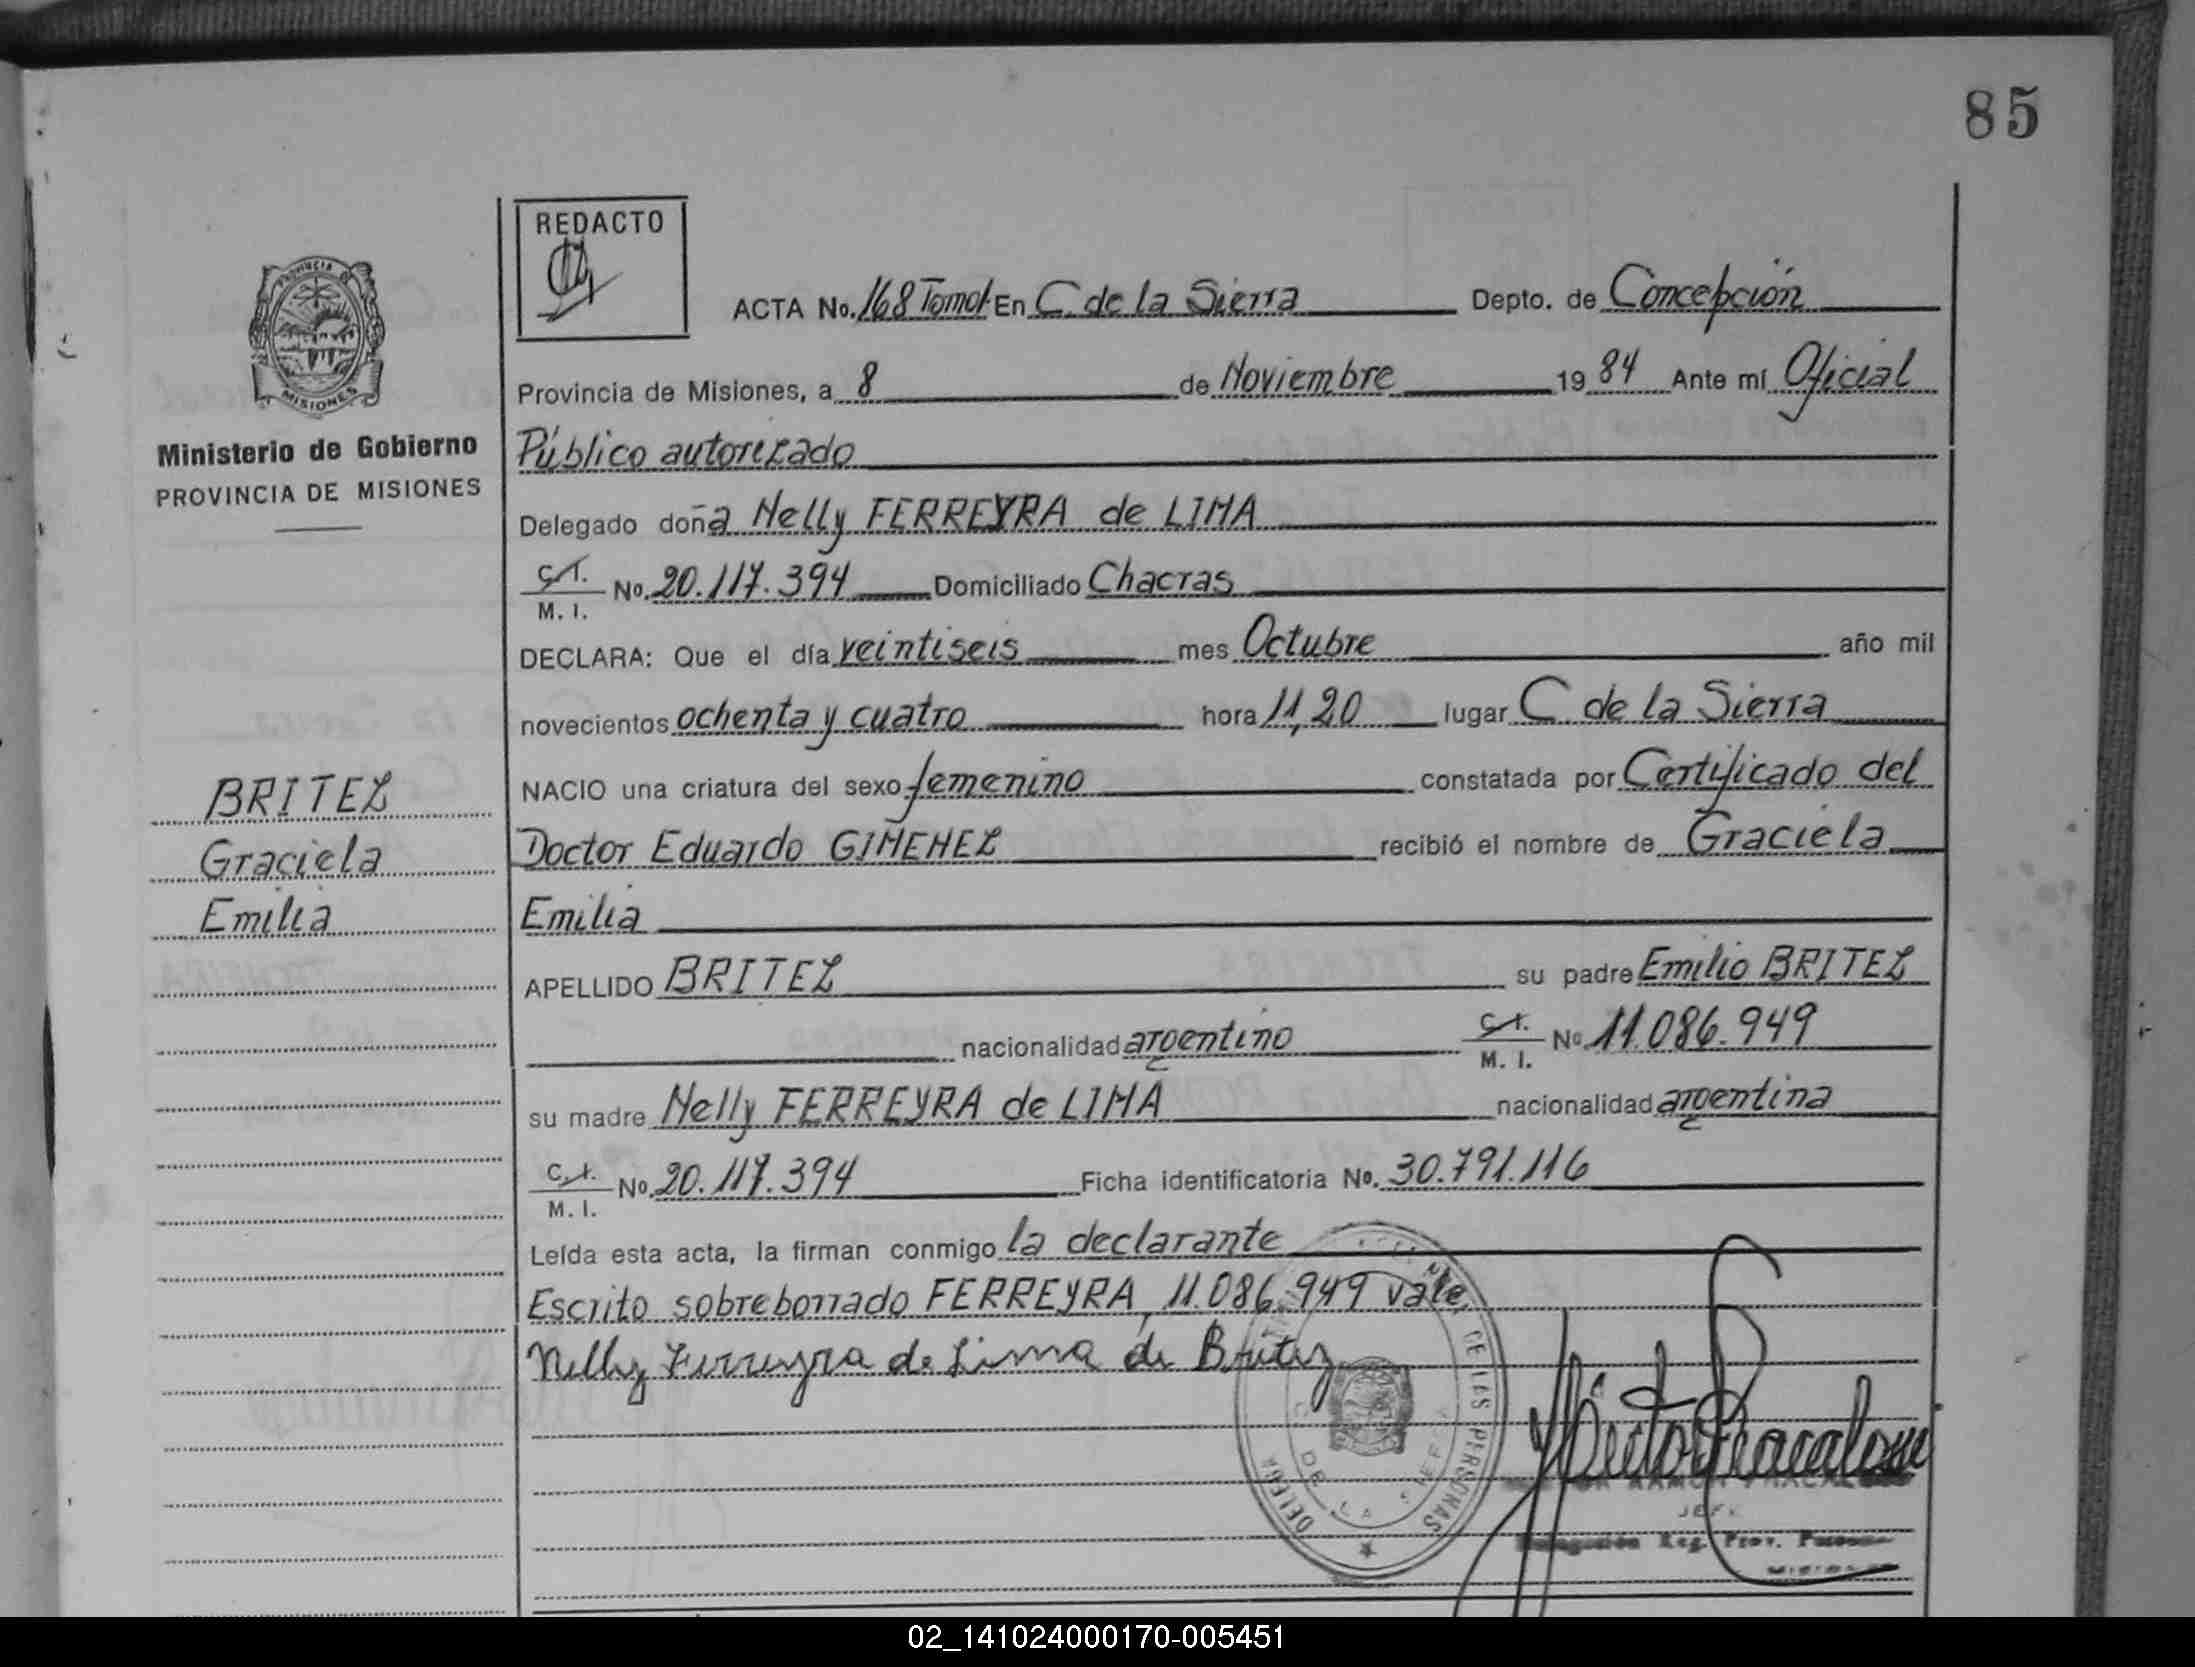 85
REDACTO
PROVINCIA
MISIONES
ACTA No. 168 Tomo I En C. de la Sierra Depto. de Concepción
Provincia de Misiones, a 8 de Noviembre 1984 Ante mí Oficial
Ministerio de Gobierno
PROVINCIA DE MISIONES
Público autorizado
Delegado doña Nelly FERREYRA de LIMA
C. I.
M. I. No. 20.117.394 Domiciliado Chacras
DECLARA: Que el día veintiseis mes Octubre año mil
novecientos ochenta y cuatro hora 11,20 lugar C. de la Sierra
NACIO una criatura del sexo femenino constatada por Certificado del
BRITEZ
Doctor Eduardo GIMENEZ recibió el nombre de Graciela
Graciela
Emilia
Emilia
APELLIDO BRITEZ su padre Emilio BRITEZ
nacionalidad argentino C. I. M. I. No. 11.086.949
su madre Nelly FERREYRA de LIMA nacionalidad argentina
C. I.
M. I. No. 20.117.394 Ficha identificatoria No. 30.791.116
Leída esta acta, la firman conmigo la declarante
Escrito sobreborrado FERREYRA, 11.086.949 vale.
Nelly Ferreyra de Lima de Britez
DE LAS PERSONAS
DE LA
JEFE
Reg. Prov.
02_141024000170-005451